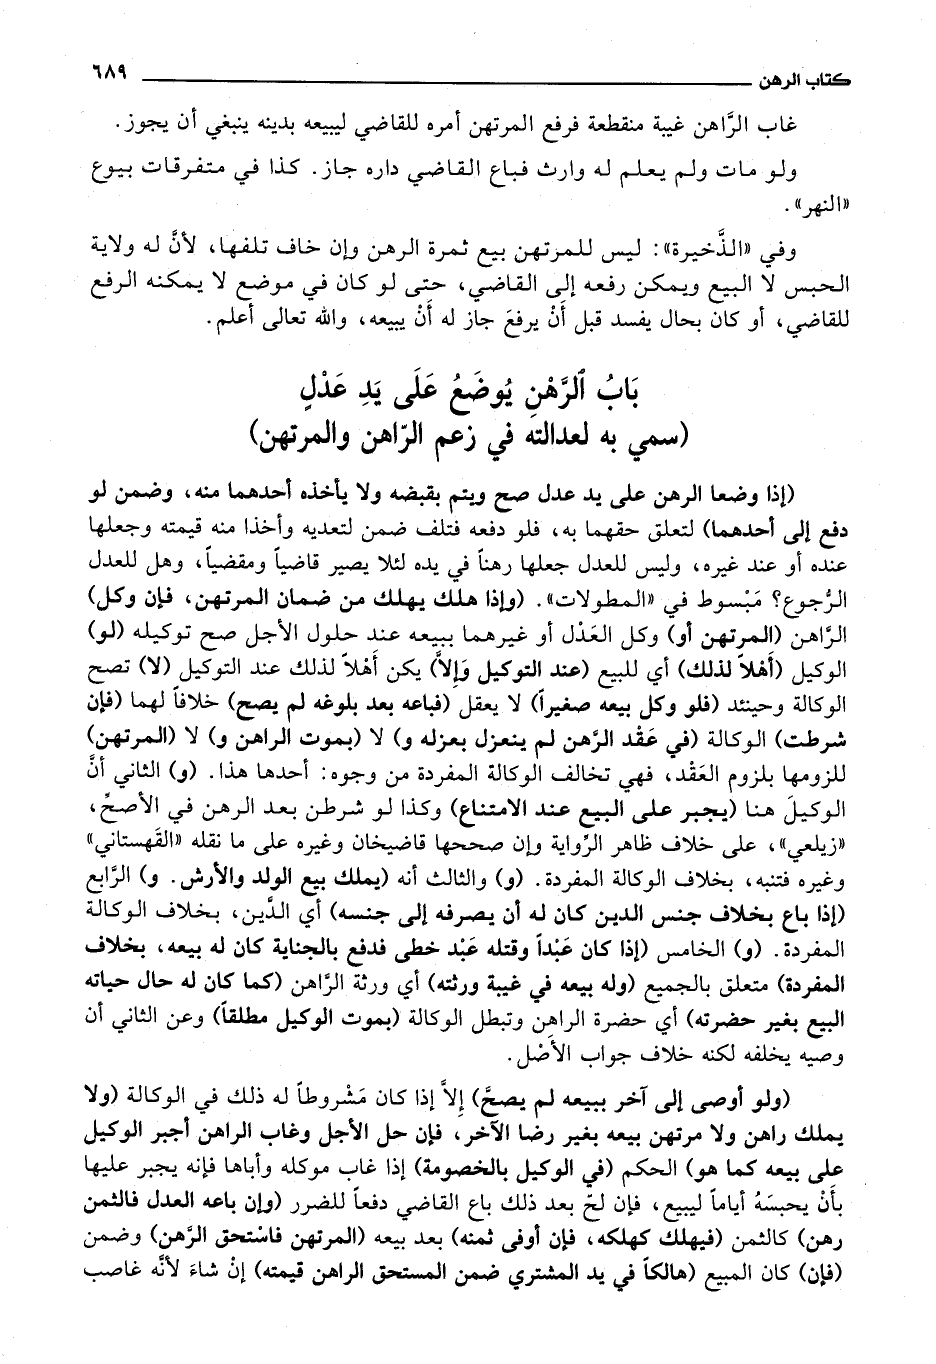 كتاب الرهن ٦٨٩
غاب الرَّاهن غيبة منقطعة فرفع المرتهن أمره للقاضي ليبيعه بدينه ينبغي أن يجوز.
ولو مات ولم يعلم له وارث فباع القاضي داره جاز. كذا في متفرقات بيوع
«النهر».
وفي «الذَّخيرة»: ليس للمرتهن بيع ثمرة الرهن وإن خاف تلفها، لأنَّ له ولاية
الحبس لا البيع ويمكن رفعه إلى القاضي، حتى لو كان في موضع لا يمكنه الرفع
للقاضي، أو كان بحال يفسد قبل أَنْ يرفعَ جاز له أَنْ يبيعه، والله تعالى أعلم.
بَابُ ٱلرَّهْنِ يُوضَعُ عَلَى يَدِ عَدْلٍ
(سمي به لعدالته في زعم الرّاهن والمرتهن)
(إذا وضعا الرهن على يد عدل صح ويتم بقبضه ولا يأخذه أحدهما منه، وضمن لو
دفع إلى أحدهما) لتعلق حقهما به، فلو دفعه فتلف ضمن لتعديه وأخذا منه قيمته وجعلها
عنده أو عند غيره، وليس للعدل جعلها رهناً في يده لئلا يصير قاضياً ومقضياً، وهل للعدل
الرُّجوع؟ مَبْسوط في «المطولات». (وإذا هلك يهلك من ضمان المرتهن، فإن وكل)
الرَّاهن (المرتهن أو) وكل العَدْل أو غيرهما ببيعه عند حلول الأجل صح توكيله (لو)
الوكيل (أَهلاً لذلك) أي للبيع (عند التوكيل وَإِلاَّ) يكن أَهلاً لذلك عند التوكيل (لا) تصح
الوكالة وحينئذ (فلو وكل ببيعه صغيراً) لا يعقل (فباعه بعد بلوغه لم يصح) خلافاً لهما (فإن
شرطت) الوكالة (في عَقْد الرَّهن لم ينعزل بعزله و) لا (بموت الراهن و) لا (المرتهن)
للزومها بلزوم العَقْد، فهي تخالف الوكالة المفردة من وجوه: أحدها هذا. (و) الثاني أنَّ
الوكيلَ هنا (يجبر على البيع عند الامتناع) وكذا لو شرطن بعد الرهن في الأصحِّ،
«زيلعي»، على خلاف ظاهر الرِّواية وإن صححها قاضيخان وغيره على ما نقله «القَهستاني»
وغيره فتنبه، بخلاف الوكالة المفردة. (و) والثالث أنه (يملك بيع الولد والأرش. و) الرَّابع
(إذا باع بخلاف جنس الدين كان له أن يصرفه إلى جنسه) أي الدَّين، بخلاف الوكالة
المفردة. (و) الخامس (إذا كان عَبْداً وقتله عَبْد خطى فدفع بالجناية كان له بيعه، بخلاف
المفردة) متعلق بالجميع (وله بيعه في غيبة ورثته) أي ورثة الرَّاهن (كما كان له حال حياته
البيع بغير حضرته) أي حضرة الراهن وتبطل الوكالة (بموت الوكيل مطلقاً) وعن الثاني أن
وصيه يخلفه لكنه خلاف جواب الأَصْل.
(ولو أوصى إلى آخر ببيعه لم يصحَّ) إِلاَّ إذا كان مَشْروطاً له ذلك في الوكالة (ولا
يملك راهن ولا مرتهن بيعه بغير رضا الآخر، فإن حل الأجل وغاب الراهن أجبر الوكيل
على بيعه كما هو) الحكم (في الوكيل بالخصومة) إذا غاب موكله وأباها فإنه يجبر عليها
بأَنْ يحبسَهُ أياماً ليبيع، فإن لجّ بعد ذلك باع القاضي دفعاً للضرر (وإن باعه العدل فالثمن
رهن) كالثمن (فيهلك كهلكه، فإن أوفى ثمنه) بعد بيعه (المرتهن فاسْتحق الرَّهن) وضمن
(فإن) كان المبيع (هالكاً في يد المشتري ضمن المستحق الراهن قيمته) إنْ شاءَ لأنَّه غاصب